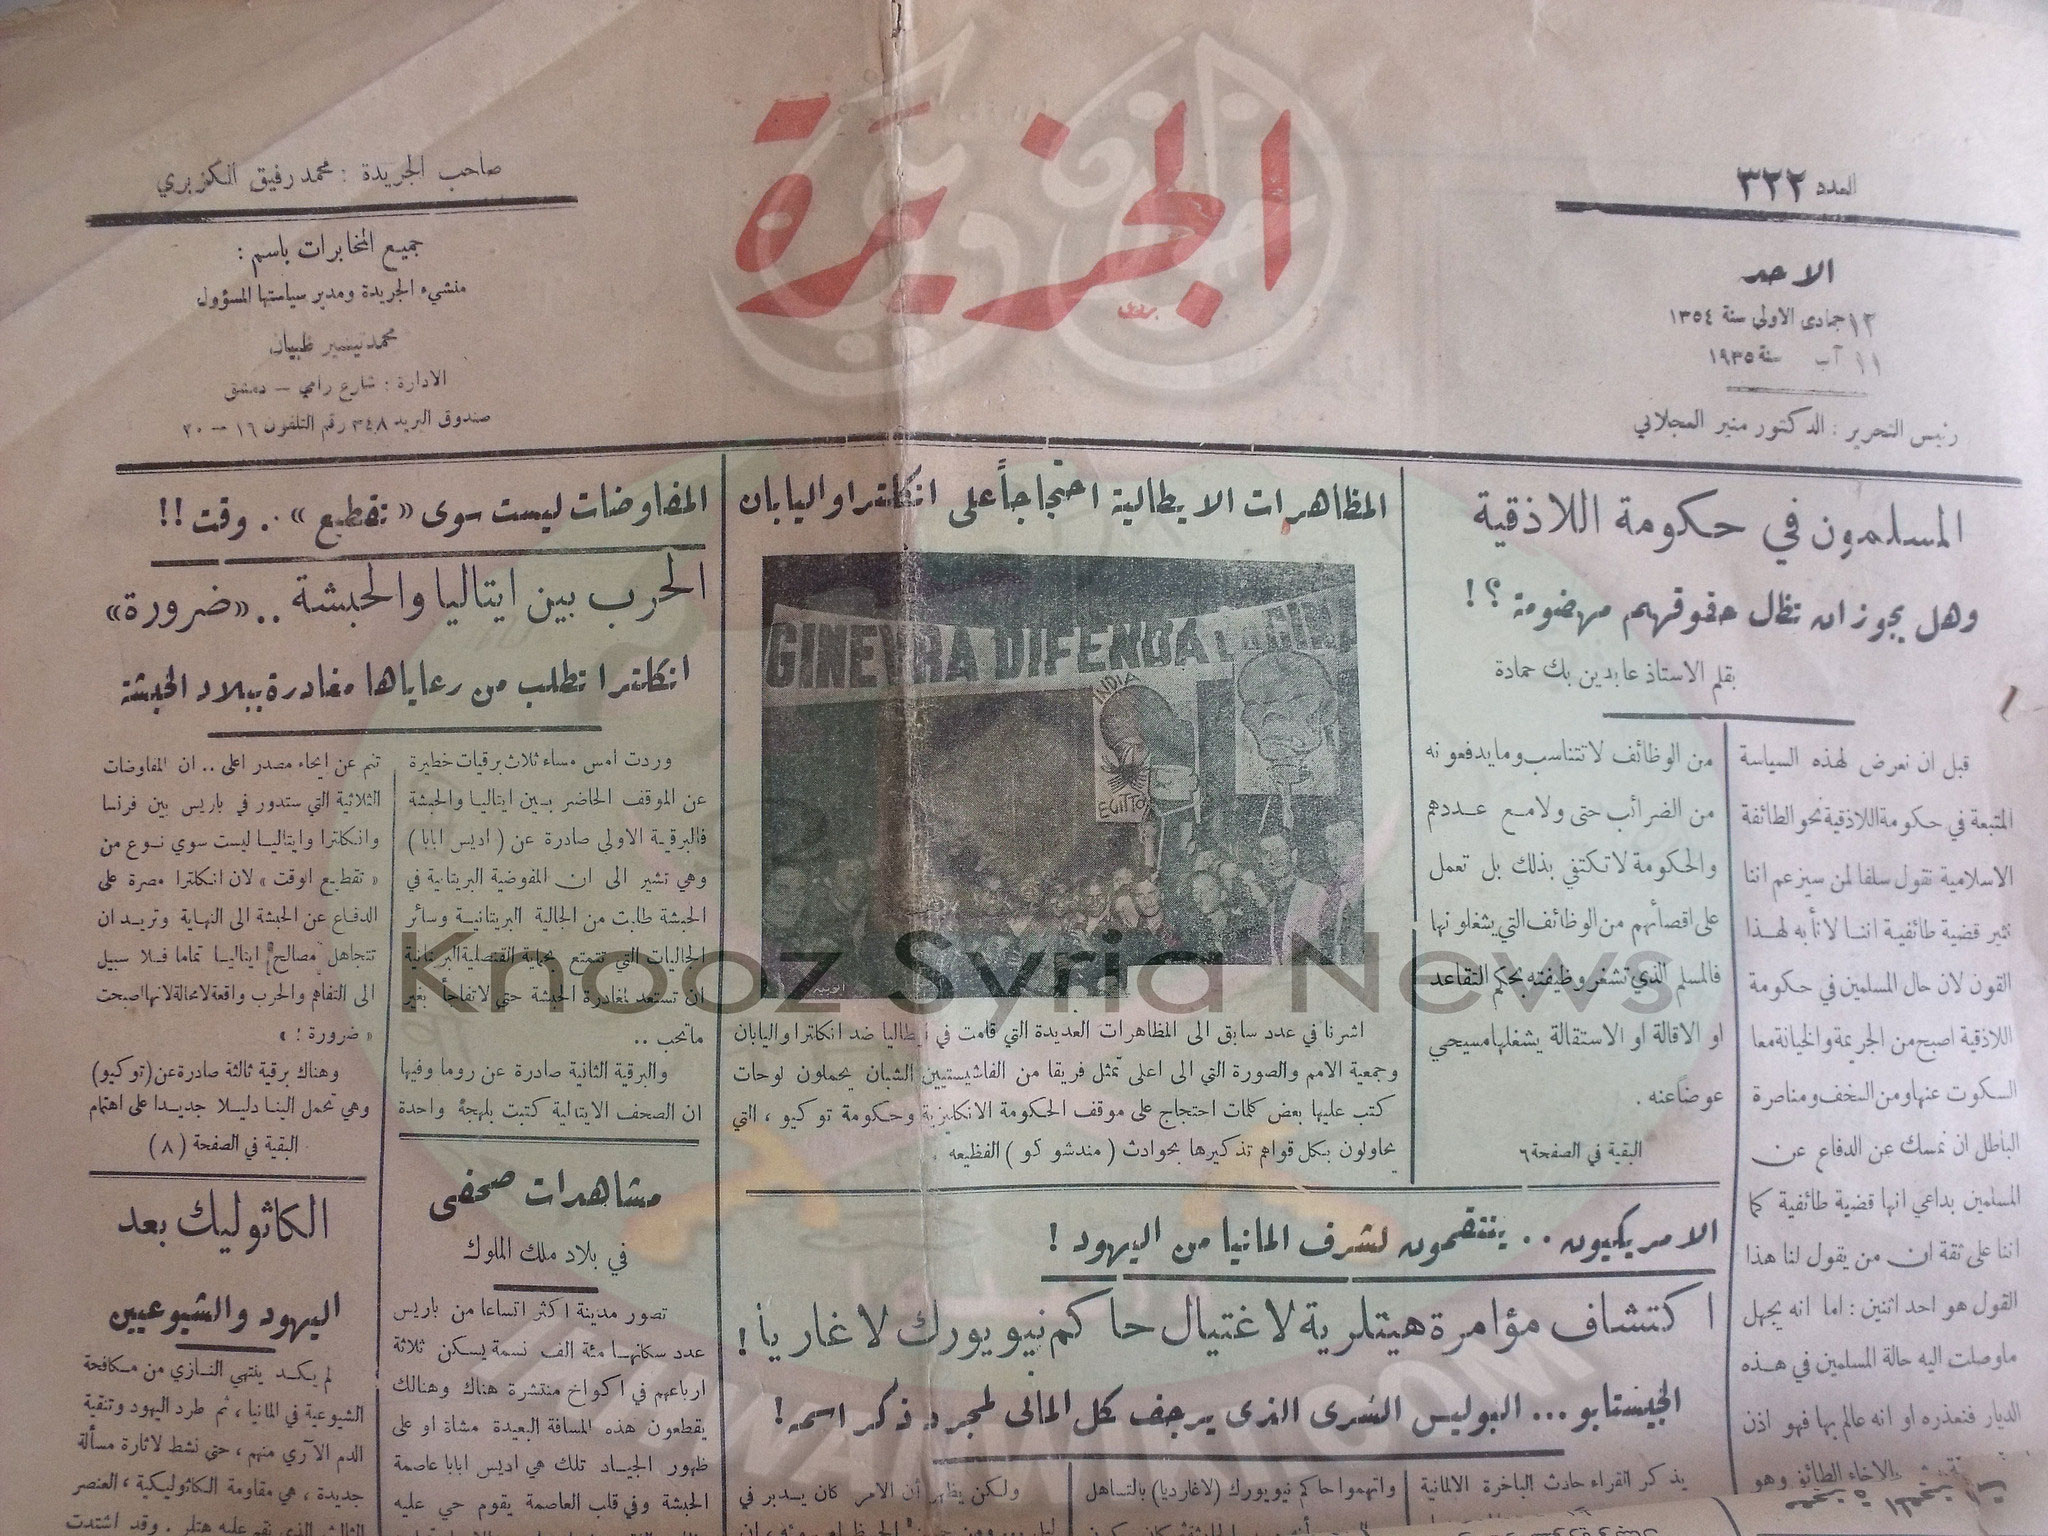 الجزيرة
العدد ٣٢٢
الاحد
١٢ جمادى الاولى سنة ١٣٥٤
١١ آب سنة ١٩٣٥
رئيس التحرير : الدكتور منير العجلاني
صاحب الجريدة : محمد رفيق الكزبري
جميع المخابرات باسم :
منشيء الجريدة ومدير سياستها المسؤول
محمد تيسير ظبيان
الادارة : شارع رامي — دمشق
صندوق البريد ٣٤٨ رقم التلفون ١٦ — ٢٠
المسلمون في حكومة اللاذقية
وهل يجوز ان تظل حقوقهم مهضومة ؟ !
بقلم الاستاذ عابدين بك حمادة
قبل ان نعرض لهذه السياسة
المتبعة في حكومة اللاذقية نحو الطائفة
الاسلامية نقول سلفا لمن سيزعم اننا
نثير قضية طائفية اننا لا نأبه لهذا
القول لان حال المسلمين في حكومة
اللاذقية اصبح من الجريمة والخيانة معا
السكوت عنها ومن السخف ومناصرة
الباطل ان نمسك عن الدفاع عن
المسلمين بداعي انها قضية طائفية كما
اننا على ثقة ان من يقول لنا هذا
القول هو احد اثنين : اما انه يجهل
ما وصلت اليه حالة المسلمين في هذه
الديار فنعذره او انه عالم بها فهو اذن
الاخاء الطائفي وهو
من الوظائف لا تتناسب وما يدفعونه
من الضرائب حتى ولا مع عددهم
والحكومة لا تكتفي بذلك بل تعمل
على اقصائهم من الوظائف التي يشغلونها
فالمسلم الذي تشغر وظيفته بحكم التقاعد
او الاقالة او الاستقالة يشغلها مسيحي
عوضا عنه .
البقية في الصفحة ٦
المظاهرات الايطالية احتجاجاً على انكلترا واليابان
GINEVRA DIFENDA
INDIA
EGITTO
اشرنا في عدد سابق الى المظاهرات العديدة التي قامت في ايطاليا ضد انكلترا واليابان
وجمعية الامم والصورة التي الى اعلى تمثل فريقا من الفاشيستيين الشبان يحملون لوحات
كتب عليها بعض كلمات احتجاج على موقف الحكومة الانكليزية وحكومة توكيو ، التي
يحاولون بكل قواهم تذكيرها بحوادث ( مندشوكو ) الفظيعه .
الامريكيون . . ينتقمون لشرف المانيا من اليهود !
اكتشاف مؤامرة هيتلرية لاغتيال حاكم نيويورك لاغارديا !
الجيستابو ... البوليس السرى الذى يرجف كل المانى لمجرد ذكر اسمه !
يذكر القراء حادث الباخرة الالمانية
واتهموا حاكم نيويورك (لاغارديا) بالتساهل
ولكن يظهر أن الامر كان يدبر في
المفاوضات ليست سوى « تقطيع » . وقت !!
الحرب بين ايتاليا والحبشة .. «ضرورة»
انكلترا تطلب من رعاياها مغادرة بيلاد الحبشة
وردت امس مساء ثلاث برقيات خطيرة
عن الموقف الحاضر بين ايتاليا والحبشة
فالبرقية الاولى صادرة عن ( اديس ابابا )
وهي تشير الى ان المفوضية البريتانية في
الحبشة طلبت من الجالية البريتانية وسائر
الجاليات التي تتمتع بحماية القنصلية البريتانية
ان تستعد لمغادرة الحبشة حتى لا تفاجأ بغير
ما تحب ..
والبرقية الثانية صادرة عن روما وفيها
ان الصحف الايتالية كتبت بلهجة واحدة
تنم عن ايحاء مصدر اعلى .. ان المفاوضات
الثلاثية التي ستدور في باريس بين فرنسا
وانكلترا وايتاليا ليست سوي نوع من
« تقطيع الوقت » لان انكلترا مصرة على
الدفاع عن الحبشة الى النهاية وتريد ان
تتجاهل مصالح ايتاليا تماما فلا سبيل
الى التفاهم والحرب واقعة لا محالة لانها اصبحت
« ضرورة ؛ »
وهناك برقية ثالثة صادرة عن (توكيو)
وهي تحمل الينا دليلا جديدا على اهتمام
البقية في الصفحة (٨)
مشاهدات صحفى
في بلاد ملك الملوك
تصور مدينة اكثر اتساعا من باريس
عدد سكانها مئة الف نسمة يسكن ثلاثة
ارباعهم في اكواخ منتشرة هناك وهنالك
يقطعون هذه المسافة البعيدة مشاة او على
ظهور الجياد تلك هي اديس ابابا عاصمة
الحبشة وفي قلب العاصمة يقوم حي عليه
الكاثوليك بعد
اليهود والشيوعيين
لم يكد ينتهي النازي من مكافحة
الشيوعية في المانيا ، ثم طرد اليهود وتنقية
الدم الآري منهم ، حتى نشط لاثارة مسألة
جديدة ، هي مقاومة الكاثوليكية ، العنصر
الثالث الذي نقم عليه هتلر . وقد اشتدت
Knooz Syria News